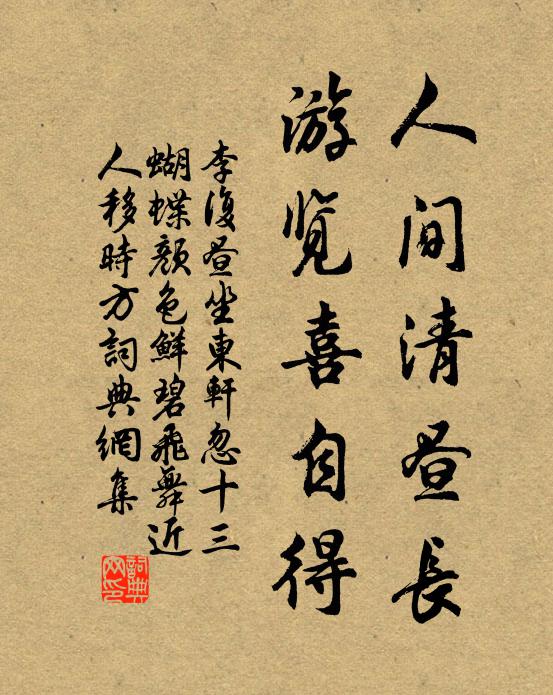 人间清昼長
游览喜自得
李復昼坐東軒忽十三
蝴蝶颜色鮮碧飛舞近
人移時方詞典網集
詞典
网印